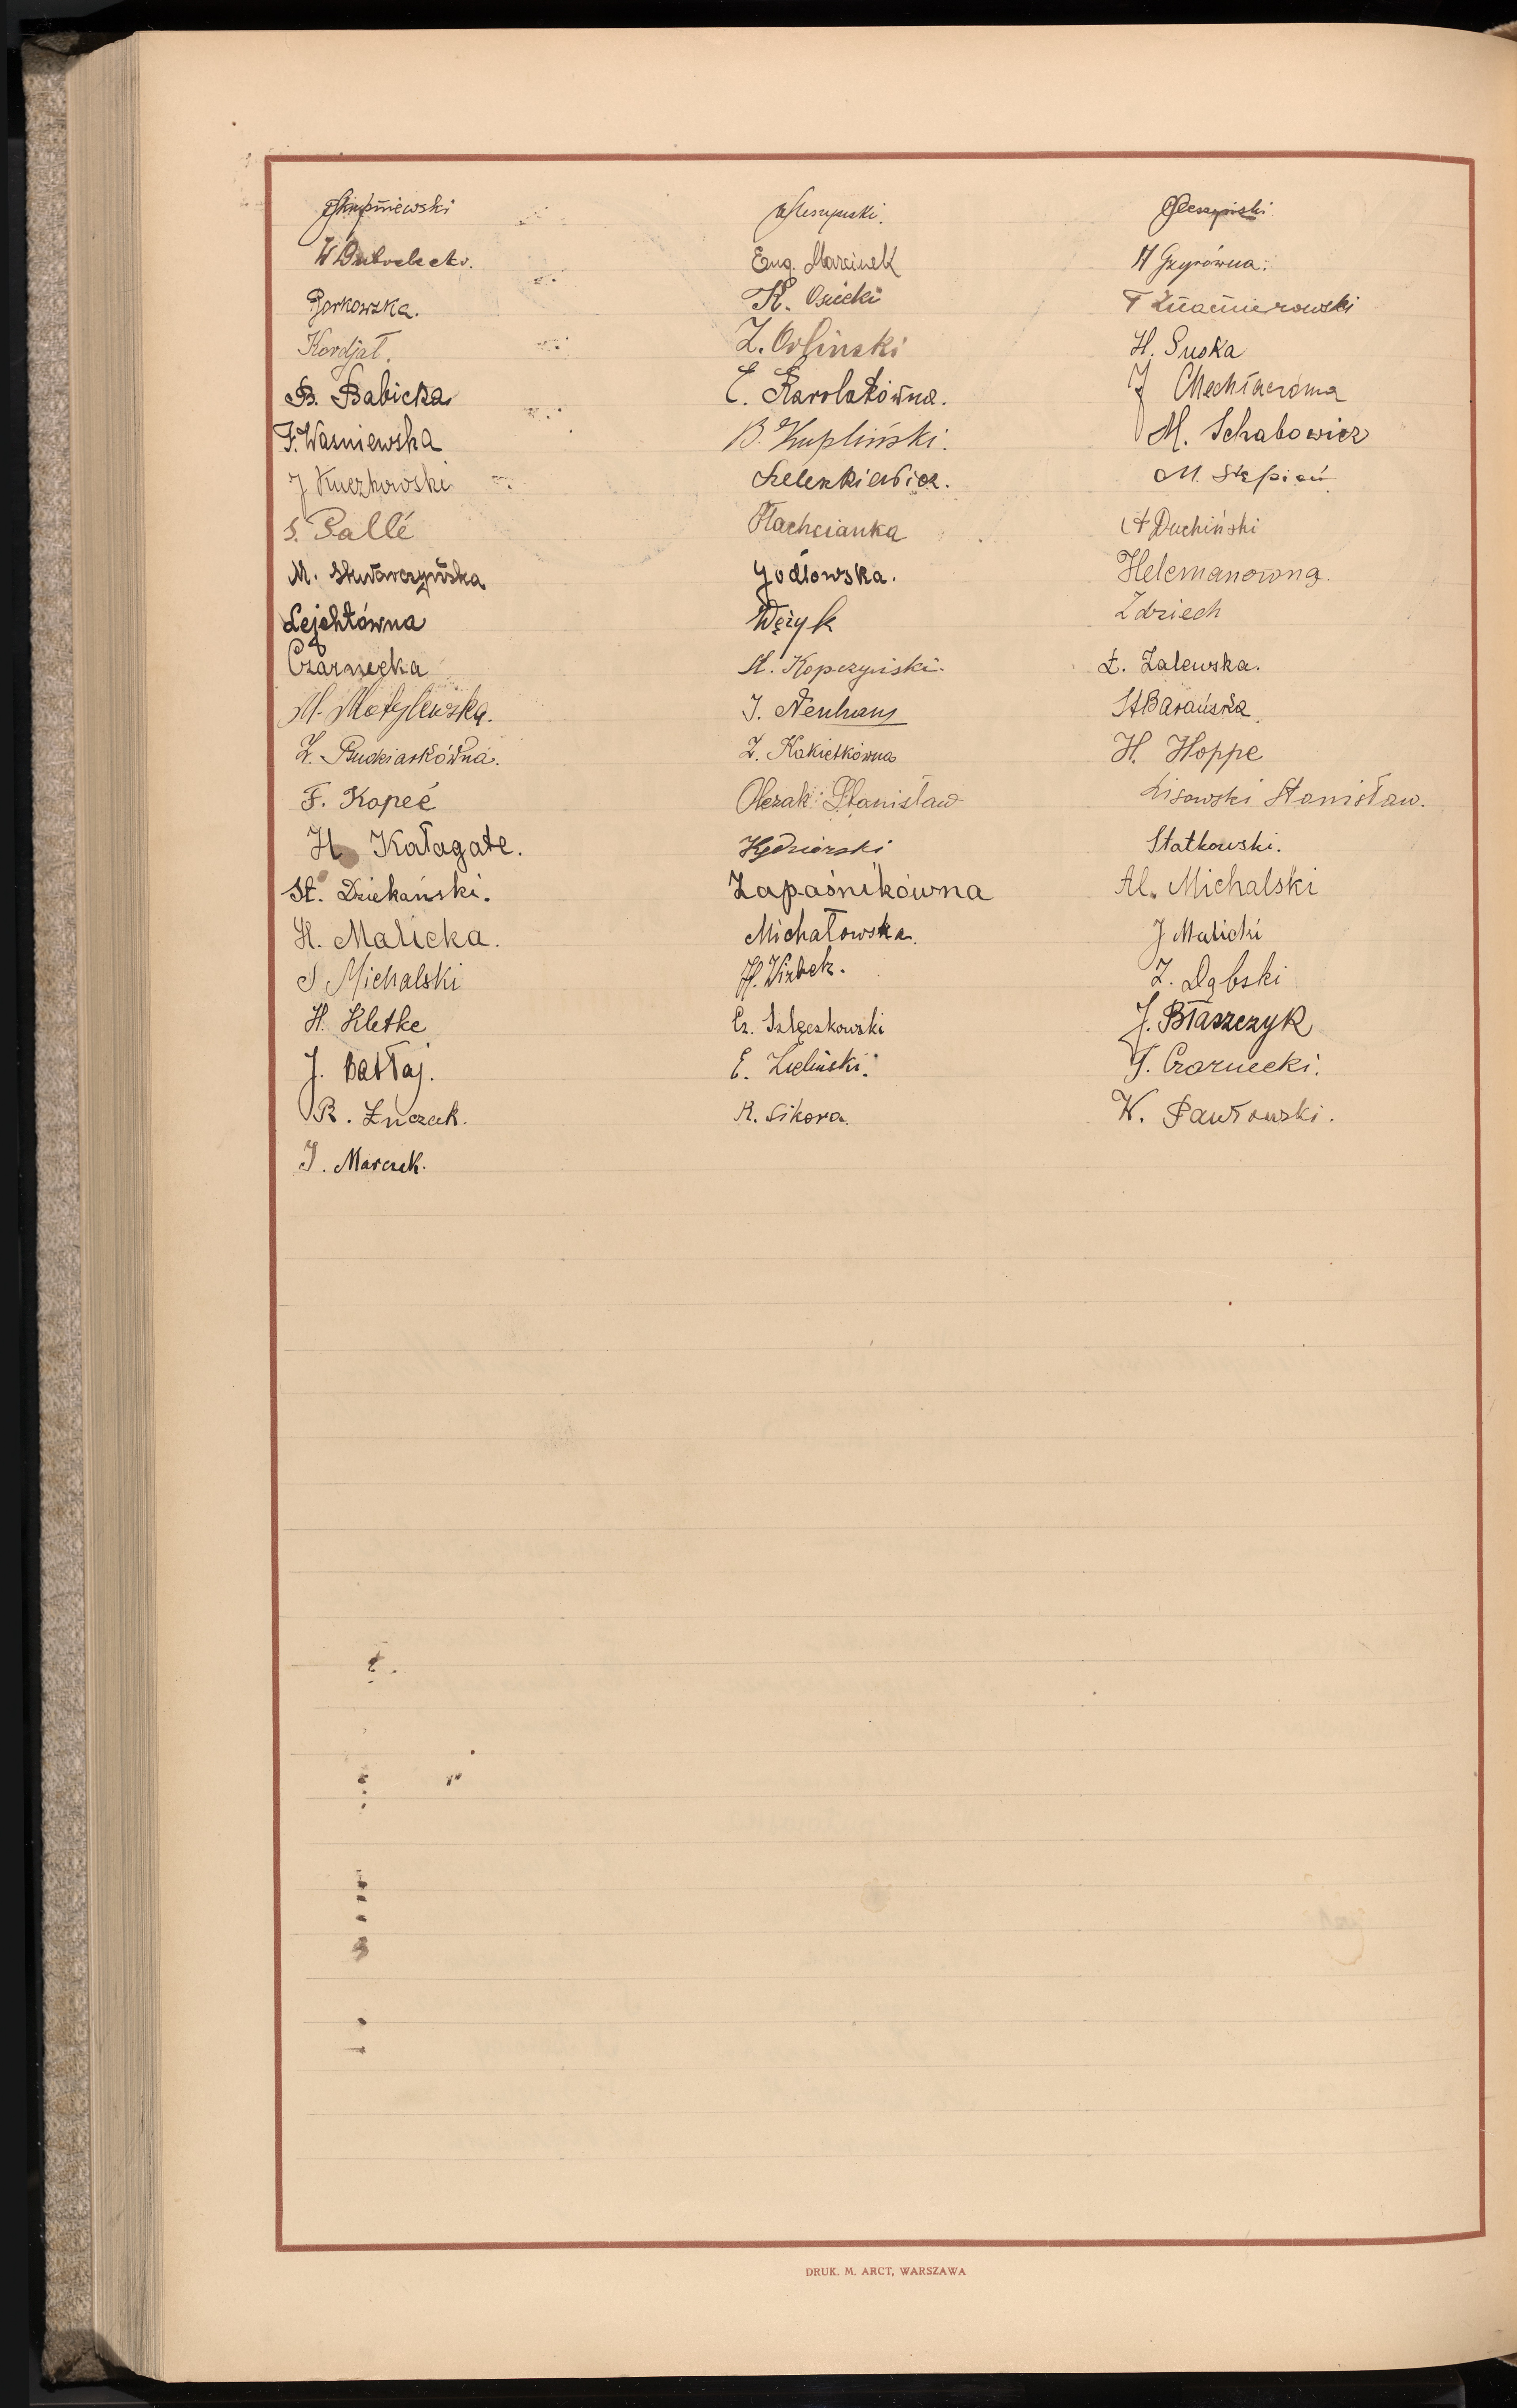 Skupniewski
W
Borkowska.
Kordjał.
B. Babicka
F. Wasniewska
J Kuczkowski
S. Pallé
M. Skwarczyńska
Lejchtówna
Czarnecka
M. Motylewska.
Z. Pudziarkówna.
F. Kopeć
H Katagate.
St. Dziekański.
H. Malicka.
S Michalski
H. Kletke
J. Bałłaj.
R. Łuczak.
J. Marczak.
Eug. Marcinek
K. Osiecki
Z. Orlinski
E. Karolakówna.
B. Kupliński.
Szelenkiewicz.
Płachcianka
Jodłowska.
Wężyk
St. Kopczyński.
J. Neuhaus
Z. Kakietkówna
Olczak Stanisław
Kędzierski
Zapaśnikówna
Michałowska.
H. Wizbek.
Cz. Szlęzkowski
E. Zieliński.
R. Sikora.
H Gzyrówna.
T Kazimierowski
H. Suska
J
M. Schabowicz
M. Stępień
A Duchiński
Helemanówna.
Zdziech
Ł. Zalewska.
St Barańska
H. Hoppe
Lisowski Stanisław.
Statkowski.
Al. Michalski
J Malicki
Z. Dąbski
J. Błaszczyk
T. Czarnecki.
W. Pawłowski.
DRUK. M. ARCT, WARSZAWA